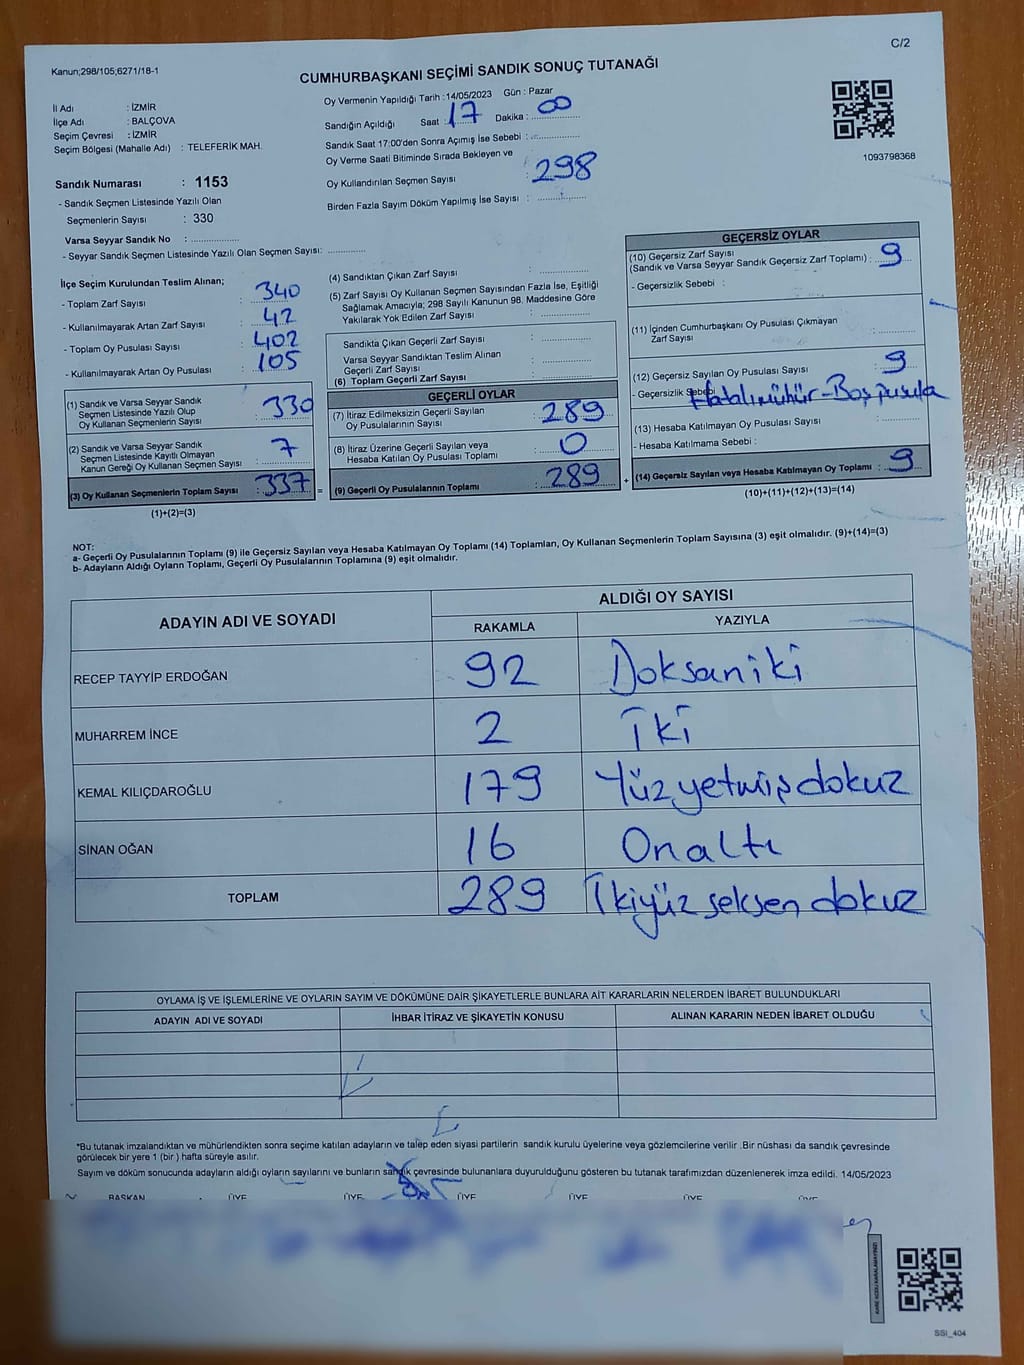 C/2
Kanun;298/105;6271/18-1
CUMHURBAŞKANI SEÇİMİ SANDIK SONUÇ TUTANAĞI
İl Adı : İZMİR
İlçe Adı : BALÇOVA
Seçim Çevresi : İZMİR
Seçim Bölgesi (Mahalle Adı) : TELEFERİK MAH.
Sandık Numarası : 1153
- Sandık Seçmen Listesinde Yazılı Olan
Seçmenlerin Sayısı : 330
Varsa Seyyar Sandık No :
- Seyyar Sandık Seçmen Listesinde Yazılı Olan Seçmen Sayısı:
Oy Vermenin Yapıldığı Tarih :14/05/2023 Gün : Pazar
Sandığın Açıldığı Saat : 17 Dakika : 00
Sandık Saat 17:00'den Sonra Açımış İse Sebebi :
Oy Verme Saati Bitiminde Sırada Bekleyen ve
Oy Kullandırılan Seçmen Sayısı : 298
Birden Fazla Sayım Döküm Yapılmış İse Sayısı :
1093798368
İlçe Seçim Kurulundan Teslim Alınan;
- Toplam Zarf Sayısı : 340
- Kullanılmayarak Artan Zarf Sayısı : 42
- Toplam Oy Pusulası Sayısı : 402
- Kullanılmayarak Artan Oy Pusulası : 105
(1) Sandık ve Varsa Seyyar Sandık
Seçmen Listesinde Yazılı Olup
Oy Kullanan Seçmenlerin Sayısı : 330
(2) Sandık ve Varsa Seyyar Sandık
Seçmen Listesinde Kayıtlı Olmayan
Kanun Gereği Oy Kullanan Seçmen Sayısı : 7
(3) Oy Kullanan Seçmenlerin Toplam Sayısı : 337 =
(1)+(2)=(3)
(4) Sandıktan Çıkan Zarf Sayısı :
(5) Zarf Sayısı Oy Kullanan Seçmen Sayısından Fazla İse, Eşitliği
Sağlamak Amacıyla; 298 Sayılı Kanunun 98. Maddesine Göre
Yakılarak Yok Edilen Zarf Sayısı :
Sandıkta Çıkan Geçerli Zarf Sayısı :
Varsa Seyyar Sandıktan Teslim Alınan
Geçerli Zarf Sayısı :
(6) Toplam Geçerli Zarf Sayısı :
GEÇERLİ OYLAR
(7) İtiraz Edilmeksizin Geçerli Sayılan
Oy Pusulalarının Sayısı : 289
(8) İtiraz Üzerine Geçerli Sayılan veya
Hesaba Katılan Oy Pusulası Toplamı : 0
(9) Geçerli Oy Pusulalarının Toplamı : 289 +
GEÇERSİZ OYLAR
(10) Geçersiz Zarf Sayısı
(Sandık ve Varsa Seyyar Sandık Geçersiz Zarf Toplamı) : 9
- Geçersizlik Sebebi :
(11) İçinden Cumhurbaşkanı Oy Pusulası Çıkmayan
Zarf Sayısı :
(12) Geçersiz Sayılan Oy Pusulası Sayısı : 9
- Geçersizlik Sebebi Hatalı mühür - Boş pusula
(13) Hesaba Katılmayan Oy Pusulası Sayısı :
- Hesaba Katılmama Sebebi :
(14) Geçersiz Sayılan veya Hesaba Katılmayan Oy Toplamı : 9
(10)+(11)+(12)+(13)=(14)
NOT:
a- Geçerli Oy Pusulalarının Toplamı (9) ile Geçersiz Sayılan veya Hesaba Katılmayan Oy Toplamı (14) Toplamları, Oy Kullanan Seçmenlerin Toplam Sayısına (3) eşit olmalıdır. (9)+(14)=(3)
b- Adayların Aldığı Oyların Toplamı, Geçerli Oy Pusulalarının Toplamına (9) eşit olmalıdır.
ADAYIN ADI VE SOYADI
ALDIĞI OY SAYISI
RAKAMLA YAZIYLA
RECEP TAYYİP ERDOĞAN 92 Doksaniki
MUHARREM İNCE 2 İki
KEMAL KILIÇDAROĞLU 179 Yüzyetmişdokuz
SİNAN OĞAN 16 Onaltı
TOPLAM 289 İkiyüz seksen dokuz
OYLAMA İŞ VE İŞLEMLERİNE VE OYLARIN SAYIM VE DÖKÜMÜNE DAİR ŞİKAYETLERLE BUNLARA AİT KARARLARIN NELERDEN İBARET BULUNDUKLARI
ADAYIN ADI VE SOYADI İHBAR İTİRAZ VE ŞİKAYETİN KONUSU ALINAN KARARIN NEDEN İBARET OLDUĞU
*Bu tutanak imzalandıktan ve mühürlendikten sonra seçime katılan adayların ve talep eden siyasi partilerin sandık kurulu üyelerine veya gözlemcilerine verilir .Bir nüshası da sandık çevresinde
görülecek bir yere 1 (bir ) hafta süreyle asılır.
Sayım ve döküm sonucunda adayların aldığı oyların sayılarını ve bunların sandık çevresinde bulunanlara duyurulduğunu gösteren bu tutanak tarafımızdan düzenlenerek imza edildi. 14/05/2023
BAŞKAN ÜYE ÜYE ÜYE ÜYE ÜYE ÜYE
SSI_404